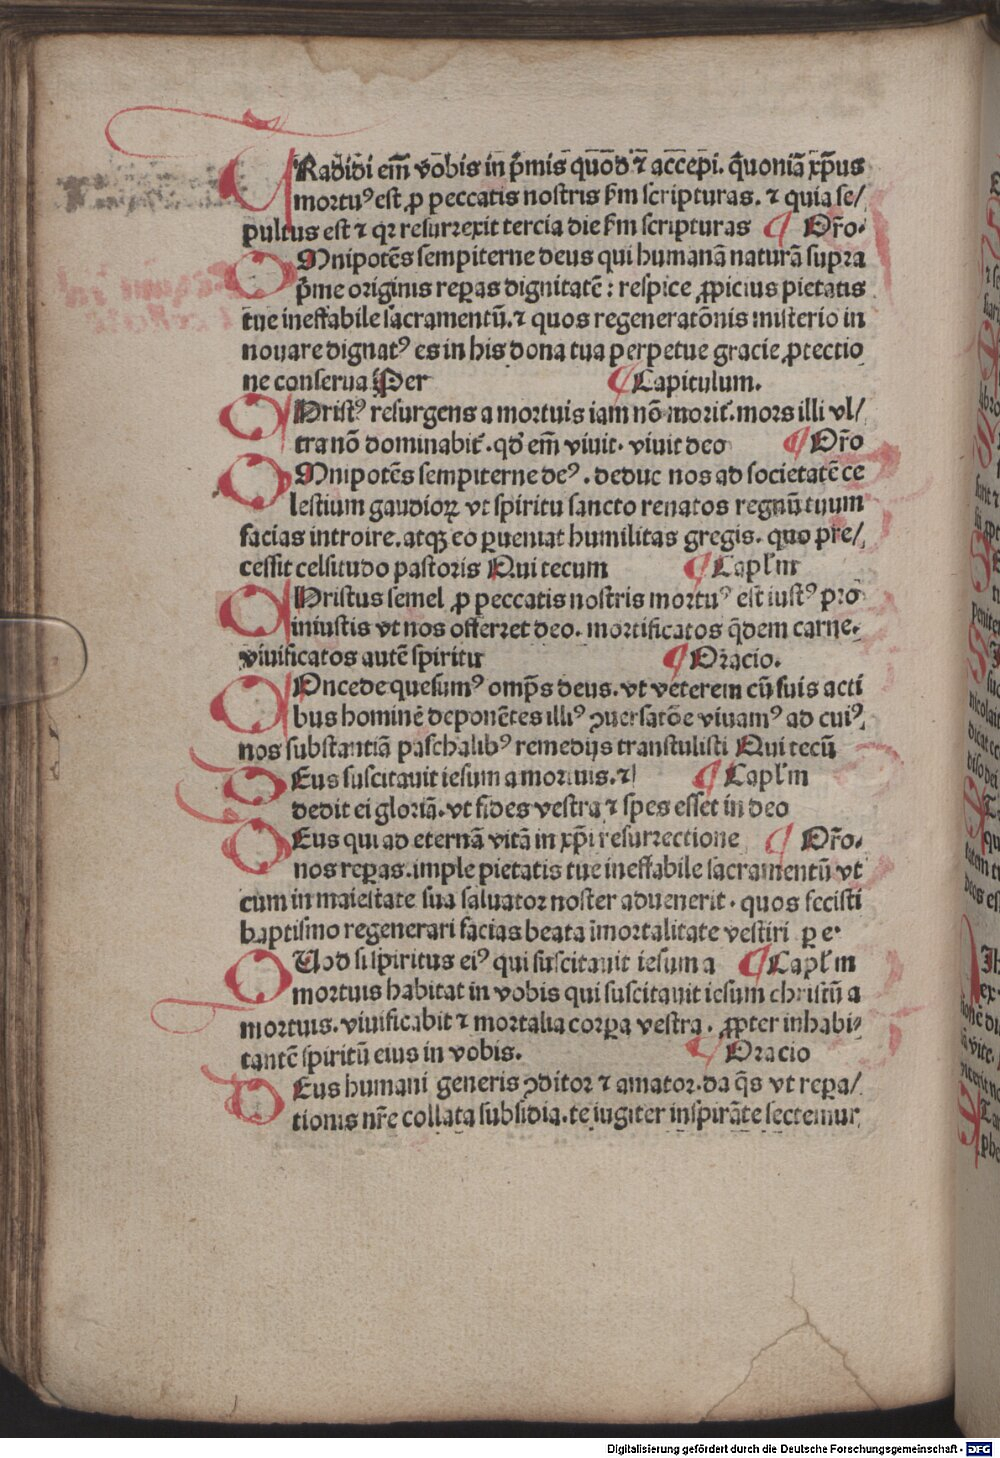 TRadidi em̄ vobis in p̄mis quod ⁊ accepi. qm̄oniā xp̄us
mortuꝰ est ꝓ peccatis nostris scd'm scripturas. ⁊ quia se/
pultus est ⁊ qꝛ resurrexit tercia die scd'm scripturas ¶ Or̄o.
OMnipotēs sempiterne deus qui humanā naturā supra
p̄me originis reꝑas dignitatē : respice ꝓpicius pietatis
tue ineffabile sacramentū. ⁊ quos regeneratōnis misterio in
nouare dignatꝰ es in his dona tua perpetue gracie ꝓtectio
ne conserua Per ¶ Capitulum.
CHristꝰ resurgens a mortuis iam nō morit᷑. mors illi vl/
tra nō dominabit᷑. qd' em̄ viuit. viuit deo ¶ Or̄o
OMnipotēs sempiterne deꝰ. deduc nos ad societatē ce
lestium gaudioꝝ vt spiritu sancto renatos regnū tuum
facias introire. atqꝫ eo ꝑueniat humilitas gregis. quo pre/
cessit celsitudo pastoris Qui tecum ¶ Capl'm
CHristus semel ꝓ peccatis nostris mortuꝰ est iustꝰ pro
iniustis vt nos offerret deo. mortificatos q̄dem carne.
viuificatos autē spiritu ¶ Oracio.
COncede quesumꝰ omp̄s deus. vt veterem cū suis acti
bus hominē deponētes illiꝰ ꝯuersatōe viuamꝰ ad cuiꝰ
nos substantiā paschalibꝰ remedijs transtulisti Qui tecū
DEus suscitauit iesum a mortuis. ⁊ ¶ Capl'm
dedit ei gloriā. vt fides vestra ⁊ spes esset in deo
DEus qui ad eternā vitā in xp̄i resurrectione ¶ Or̄o.
nos reꝑas. imple pietatis tue ineffabile sacramentū vt
cum in maiestate sua saluator noster aduenerit. quos fecisti
baptismo regenerari facias beata īmortalitate vestiri ꝑ e.
QUod si spiritus eiꝰ qui suscitauit iesum a ¶ Capl'm
mortuis habitat in vobis qui suscitauit iesum christū a
mortuis. viuificabit ⁊ mortalia corꝑa vestra. ꝓpter inhabi/
tantē spiritū eius in vobis. ¶ Oracio
DEus humani generis ꝯditor ⁊ amator. da q̄s vt reꝑa/
tionis nr̄e collata subsidia. te iugiter inspirāte sectemur
Digitalisierung gefördert durch die Deutsche Forschungsgemeinschaft - DFG